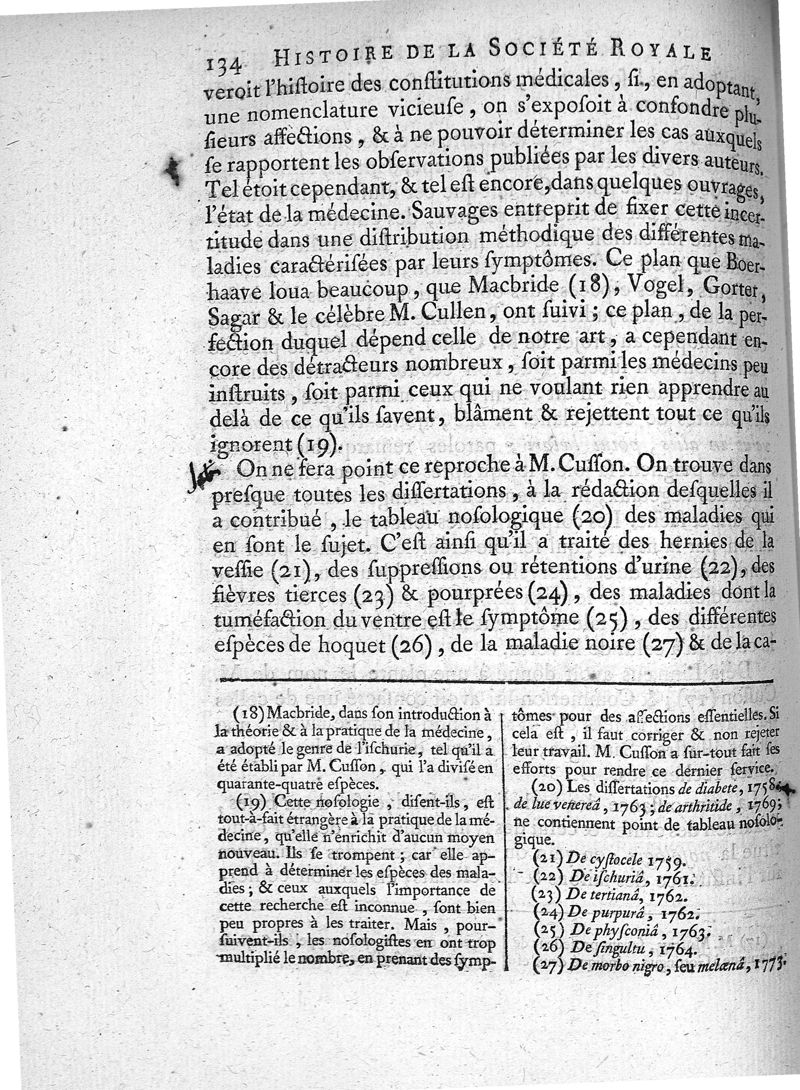 134 HISTOIRE DE LA SOCIÉTÉ ROYALE
veroit l'hiſtoire des conſtitutions médicales, ſi, en adoptant,
une nomenclature vicieuſe, on s'expoſoit à confondre plu-
ſieurs affections, & à ne pouvoir déterminer les cas auxquels
ſe rapportent les obſervations publiées par les divers auteurs.
Tel étoit cependant, & tel eſt encore, dans quelques ouvrages,
l'état de la médecine. Sauvages entreprit de fixer cette incer-
titude dans une diſtribution méthodique des différentes ma-
ladies caractériſées par leurs ſymptômes. Ce plan que Boer-
haave loua beaucoup, que Macbride (18), Vogel, Gorter,
Sagar & le célèbre M. Cullen, ont ſuivi; ce plan, de la per-
fection duquel dépend celle de notre art, a cependant en-
core des détracteurs nombreux, ſoit parmi les médecins peu
inſtruits, ſoit parmi ceux qui ne voulant rien apprendre au
delà de ce qu'ils ſavent, blâment & rejettent tout ce qu'ils
ignorent (19).
On ne fera point ce reproche à M. Cuſſon. On trouve dans
preſque toutes les diſſertations, à la rédaction deſquelles il
a contribué, le tableau noſologique (20) des maladies qui
en ſont le ſujet. C'eſt ainſi qu'il a traité des hernies de la
veſſie (21), des ſuppreſſions ou rétentions d'urine (22), des
fièvres tierces (23) & pourprées (24), des maladies dont la
tuméfaction du ventre eſt le ſymptôme (25), des différentes
eſpèces de hoquet (26), de la maladie noire (27) & de la ca-
(18) Macbride, dans ſon introduction à
la théorie & à la pratique de la médecine,
a adopté le genre de l'iſchurie, tel qu'il a
été établi par M. Cuſſon, qui l'a diviſé en
quarante-quatre eſpèces.
(19) Cette noſologie, diſent-ils, eſt
tout-à-fait étrangère à la pratique de la mé-
decine, qu'elle n'enrichit d'aucun moyen
nouveau. Ils ſe trompent; car elle ap-
prend à déterminer les eſpèces des mala-
dies; & ceux auxquels l'importance de
cette recherche eſt inconnue, ſont bien
peu propres à les traiter. Mais, pour-
ſuivent-ils, les noſologiſtes en ont trop
multiplié le nombre, en prenant des ſymp-
tômes pour des affections eſſentielles. Si
celà eſt, il faut corriger & non rejeter
leur travail. M. Cuſſon a ſur-tout fait ſes
efforts pour rendre ce dernier ſervice.
(20) Les diſſertations de diabete, 1758;
de lue venereâ, 1763; de arthritide, 1769;
ne contiennent point de tableau noſolo-
gique.
(21) De cyſtocele 1759.
(22) De iſchuriâ, 1761.
(23) De tertianâ, 1762.
(24) De purpurâ, 1762.
(25) De phyſconiâ, 1763.
(26) De ſingultu, 1764.
(27) De morbo nigro, ſeu melænâ, 1773.